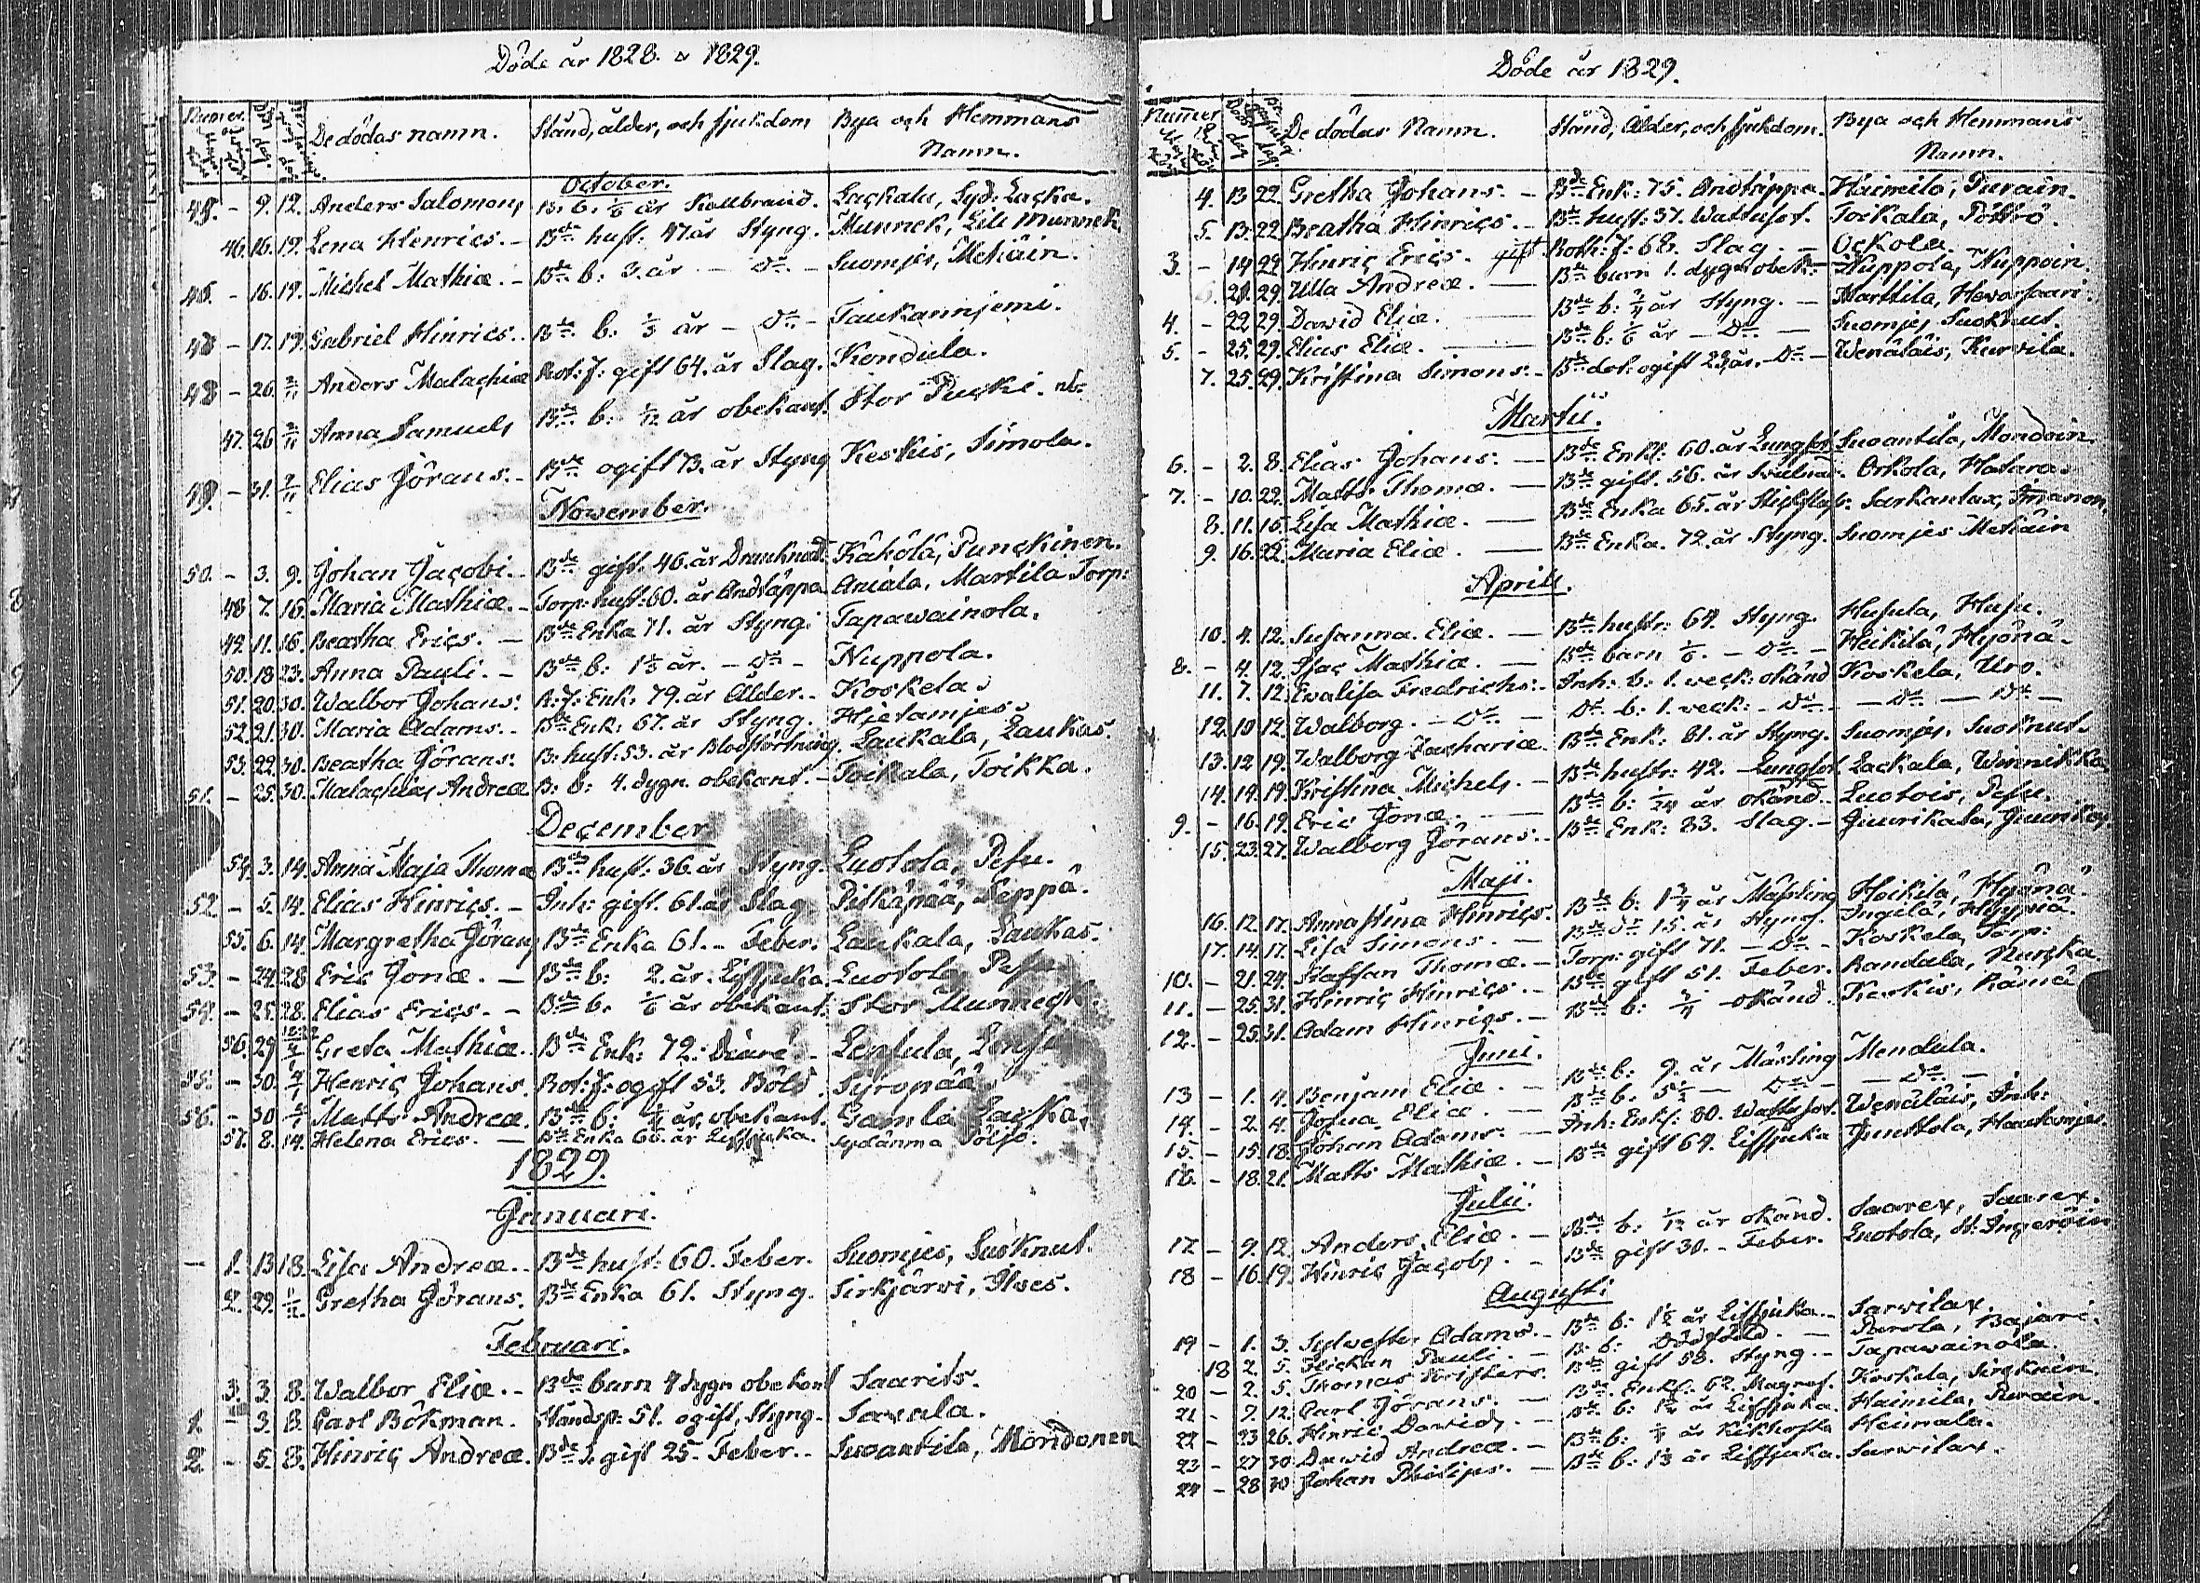 Döde år 1828. o 1829.
Numer. De dödas namn. Stånd, ålder, och sjukdom Bya och Hemmans Namn.
October.
45. - 9. 12. Anders Salomons B. b. 1/6 år Kallbrand. Lackala, Syd: Lacka.
46. 16. 19. Lena Henrics. - Bde hust: 47 år Styng. Munnek, Lill Munnek.
- 16. 19. Michel Mathiæ. - Bde b: 3. år - Do - Suomjes, Metiäin.
- 17. 19. Gabriel Hinrics. Bde b: 1/3 år - Do - Taukannjemi.
48 - 26. 2/11 Anders Malachiæ Rot: J: gift 64. år Slag. Kondula.
47. 26 2/11 Anna Samuels Bde b: 1/12 år obekant. Stor Pucki.
49. - 31. 2/11 Elias Görans. - Bde ogift 73. år Styng Keskis, Simola.
November.
50. - 3. 9. Johan Jacobi. - Bde gift. 46. år Drunknad. Käkölä, Punckinen.
48 7. 16. Maria Mathiæ. - Torp: hust: 60. år Andtäppa Aniala, Martila Torp:
49. 11. 16. Beatha Erics. - Bde Enka 71. år Styng. Tapawainola.
50. 18 23. Anna Pauli. - Bde b: 1 1/3 år. - Do - Nuppola.
51. 20. 30. Walbor Johans: R: J: Enk: 79. år Ålder. - Koskela.
52. 21. 30. Maria Adams. - Bde Enk: 67. år Styng. Hietamies.
53. 22. 30. Beatha Görans: B: hust. 53. år Blodstörtning. Laukala, Laukas.
51. - 25. 30. Malachias Andreæ B: b: 4. dygn. obekant. - Toikala, Toikka.
December
54. 3. 14. Anna Maja Thomæ Bde hust: 36. år Styng. Luotola, Pesu.
52 - 5. 14. Elias Hinrics. - Inh: gift. 61. år Slag Pitkäpää, Seppä.
55. 6. 14. Margretha Görans Bde Enka 61. - Feber. Laukala, Laukas.
53. - 24. 28 Eric Jonæ. - Bde b: 2. år. Lifsjuka. Luotola, Pesu
54. - 25. 28. Elias Erics. - Bde b. 1/6 år obekant. Stor Munneck.
56. 29 Greta Mathiæ. Bde Enk: 72. Diaré - Lensula,
55. - 30. 4/1 Henric Johans. Rot: J: ogift 53. Böld. Syropää.
56. - 30 Matts Andreæ. Bde b: 1/4 år, obekant. Gamla Lacka.
57. 8. 14. Helena Erics. - Bde Enka 66. år Lifsjuka. Sydänma
1829.
Januari.
- 1. 13 18. Lisa Andreæ. - Bde hust: 60. Feber. Suomjes, Suoknut.
2. 29. 1/2 Gretha Görans. Bde Enka 61. Styng. Sirkjärvi, Ilves.
Februari.
3. 3. 8. Walbor Eliæ. - Bde barn 4 dygn obekant Saarits.
1. - 3. 8. Carl Bökman. Ståndsp: 51. ogift, Styng. - Savala.
2. - 5. 8. Hinric Andreæ. Bde S. gift 25. Feber. - Suoantila, Mondonen
Döde år 1829.
Numer De dödas Namn. Stånd, Ålder, och sjukdom. Bya och Hemmans Namn.
4. 13 22. Gretha Johans. - Bde Enk: 75. Andtäppa. Haimila, Purain.
5. 13. 22 Beatha Hinrics. - Bde hust: 37. Wattusot. Toikala, Pöttrö.
3. - 14 22 Hinric Erics. gift Roth: J: 68. Slag. - Ockola.
21. 29. Ulla Andreæ. - Bde barn 1. dygn obek: Nuppola, Nuppoin.
4. - 22 29. David Eliæ. - Bde b: 3/4 år Styng. - Marttila, Hevossaari.
5. - 25. 29. Elias Eliæ. - Bde b: 1/6 år - Do - Suomjes Suoknut.
7. 25. 29. Kristina Simons. - Bde dot. ogift 23 år. - Do - Wenäläis, Kurvila.
Martii.
6. - 2. 8. Elias Johans: - Bde Enkl: 60. år Lungsot Suoantila, Mondoin.
7. - 10. 22. Matts Thomæ. - Bde gift. 56. år Svulnad. Orkola, Hatara.
8. 11. 15. Lisa Mathiæ. - Bde Enka 65. år Sarkaniax, Imanen,
9. 16. 22. Maria Eliæ. - Bde Enka. 72. år Styng. Suomjes Metiäin
Aprill.
10. 4. 12. Susanna. Eliæ. - Bde hustr: 64. Styng. Husula, Husu.
8. - 4. 12. Isac Mathiæ. - Bde barn 1/6. - Do - Heikilä, Hyönä.
11. 7. 12. Ewalisa Fredrichs: - Inh: b: 1. veck: okänd Koskela, Uro.
12. 10 12. Walborg. - Do - Do b: 1. veck: - Do - - Do - Do -
13. 12 19. Walborg Zachariæ. Bde Enk: 61. år Styng. Suomjes. Suoknuts
14. 14. 19. Kristina Michels. - Bde hustr: 42. Lungsot Lackala, Winnikka.
9. - 16. 19. Eric Jonæ. - Bde b: 1/24 år okänd. Luotois, Pesu.
15. 23. 27. Walborg Görans. - Bde Enk: 83. Slag. -
Maji.
16. 12. 17. Annastina Hinrics. Bde b: 1 3/4 år Mässling Heikilä, Hyönä.
17. 14. 17. Lisa Simons. - Bde Do 15. år Styng. Ingilä, Hyyriä.
10. - 21. 24. Staffan Thomæ. - Torp: gift 71. - Do - Koskela, Torp:
11. - 25. 31. Hinric Hinrics. - Bde gift 51. Feber. Randala, Nurcka
12. - 25 31. Adam Hinrics. - Bde b: 3/4 okänd. Keskis, Rämä
Juni.
13 - 1. 4. Benjam Eliæ. - Bde b: 9. år Mässling Mendula.
14. - 2. 4. Josua Eliæ. - Bde b. 5 1/2 - Do - - Do -
15. - 15. 18. Johan Adams. - Inh: Enkl: 80. Wattusot. Wenäläis, Inh:
16. - 18. 21. Matts Mathiæ. - Bde gift 64. Lifsjuka Junttola,
Julii.
17 - 9. 12. Anders. Eliæ. - Bde b: 1/12 år okänd. Saarex, Saarex.
18 - 16. 19. Hinric Jacobs. - Bde gift 30. - Feber. Luotola, St. Ingeröin
Augusti.
19 - 1. 3. Sylvester Adams. - Bde b: 1 1/2 år Lifsjuka. - Sarvilax.
18 2. 5. Flickan Pauli. - B. b: Dödföld. - Purola, Bajari.
20 - 2. 5. Thomas Kristers. Bde gift 58. Styng. - Tapawainola.
21 - 9. 12. Carl Görans. - Bde Enkl: 62. Magref. Koskela,
22 - 23 26. Hinric Davids. - Bde b: 1 1/2 år Lifsjuka. Haimila, Purain.
23 - 27 30 David Andreæ. - Bde b: år Kikhosta Heimala.
24 - 28 30 Johan Philips. - Bde b: 1 1/2 år Lifsjuka. Sarvilax.